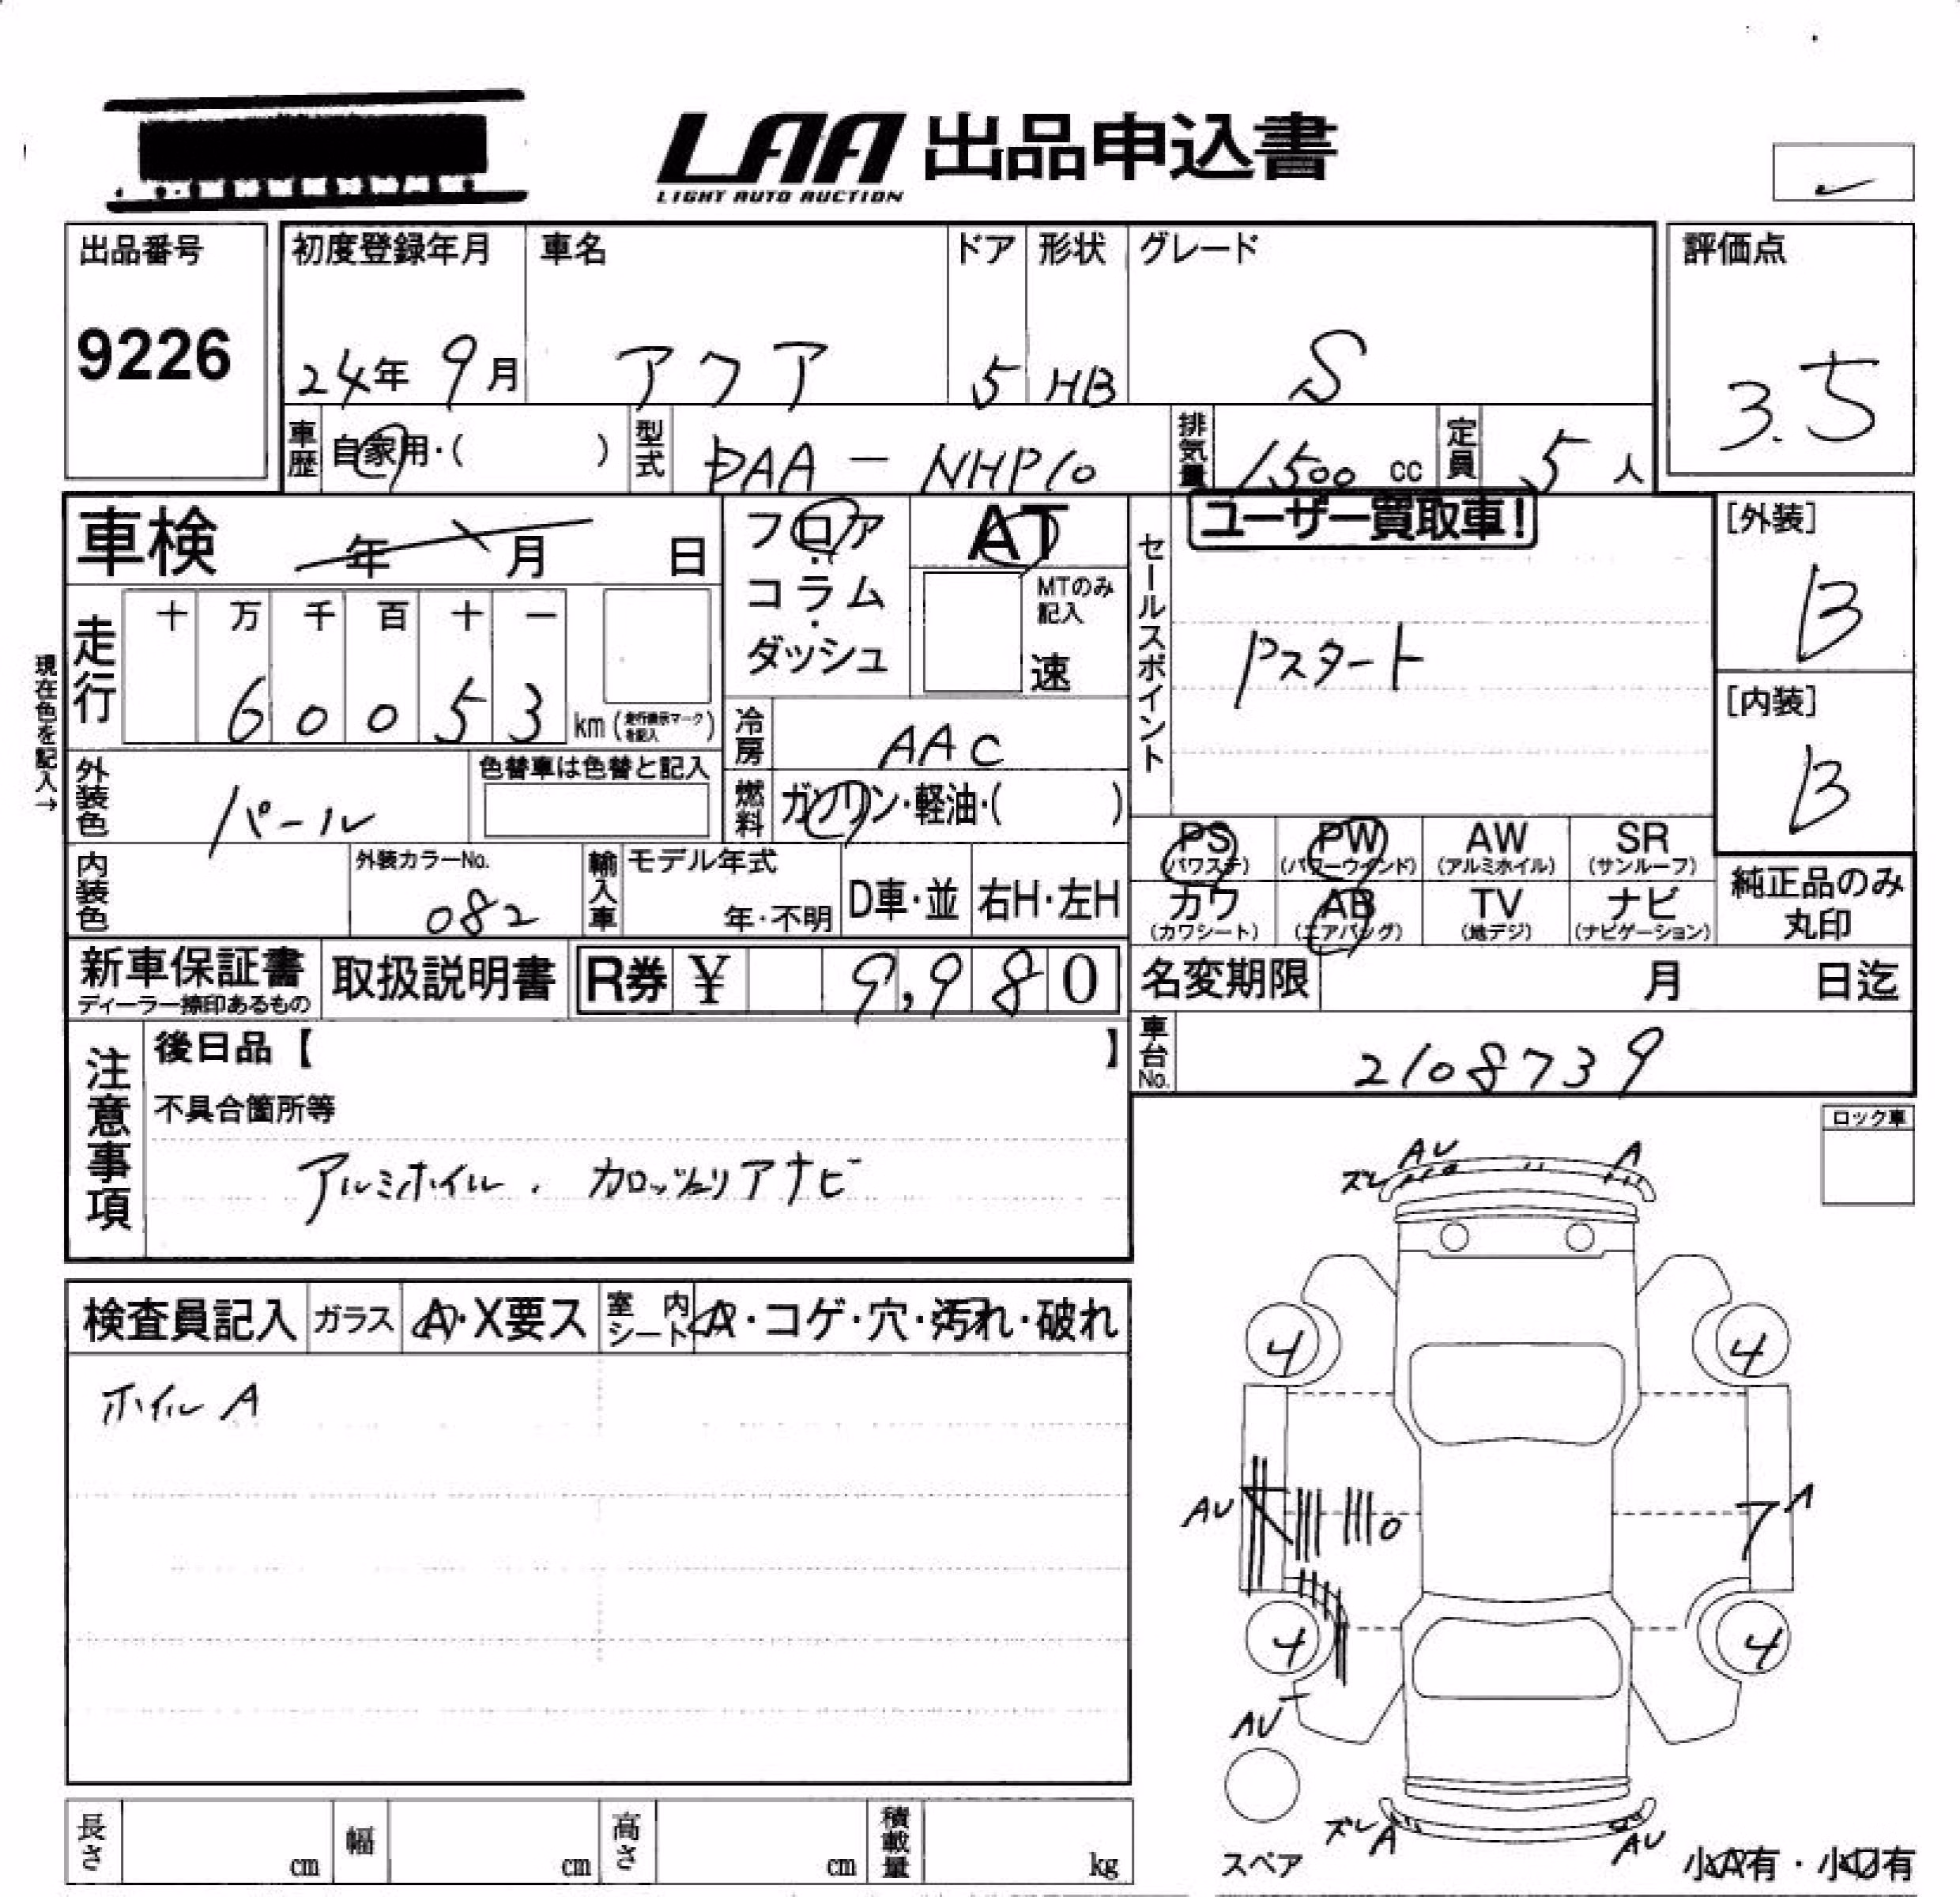 LAA 出品申込書
LIGHT AUTO AUCTION
出品番号
9226
初度登録年月
24年 9月
車名
アクア
ドア
5
形状
HB
グレード
S
評価点
3.5
車歴
自家用・( )
型式
DAA - NHP10
排気量
1500 cc
定員
5 人
車検
年 月 日
フロア
・
コラム
・
ダッシュ
AT
MTのみ
記入
速
セールスポイント
ユーザー買取車!
Pスタート
[外装]
B
[内装]
B
現在色を記入→
走行
十 万 千 百 十 一
6 0 0 5 3
km (走行表示マークを記入)
冷房
AAC
燃料
ガソリン・軽油・( )
外装色
パール
色替車は色替と記入
内装色
外装カラーNo.
082
輸入車
モデル年式
年・不明
D車・並
右H・左H
PS
(パワステ)
PW
(パワーウインド)
AW
(アルミホイル)
SR
(サンルーフ)
カワ
(カワシート)
AB
(エアバッグ)
TV
(地デジ)
ナビ
(ナビゲーション)
純正品のみ
丸印
新車保証書
ディーラー捺印あるもの
取扱説明書
R券 ¥ 9,980
名変期限
月 日迄
車台No.
2108739
注意事項
後日品【 】
不具合箇所等
アルミホイル . カロッツェリアナビ
ロック車
検査員記入
ガラス
A・X要ス
室内シート
A・コゲ・穴・汚れ・破れ
ホイルA
AU
ズレ
A
4
4
AU
A
4
4
AU
スペア
ズレA
AU
小A有・小U有
長さ
cm
幅
cm
高さ
cm
積載量
kg